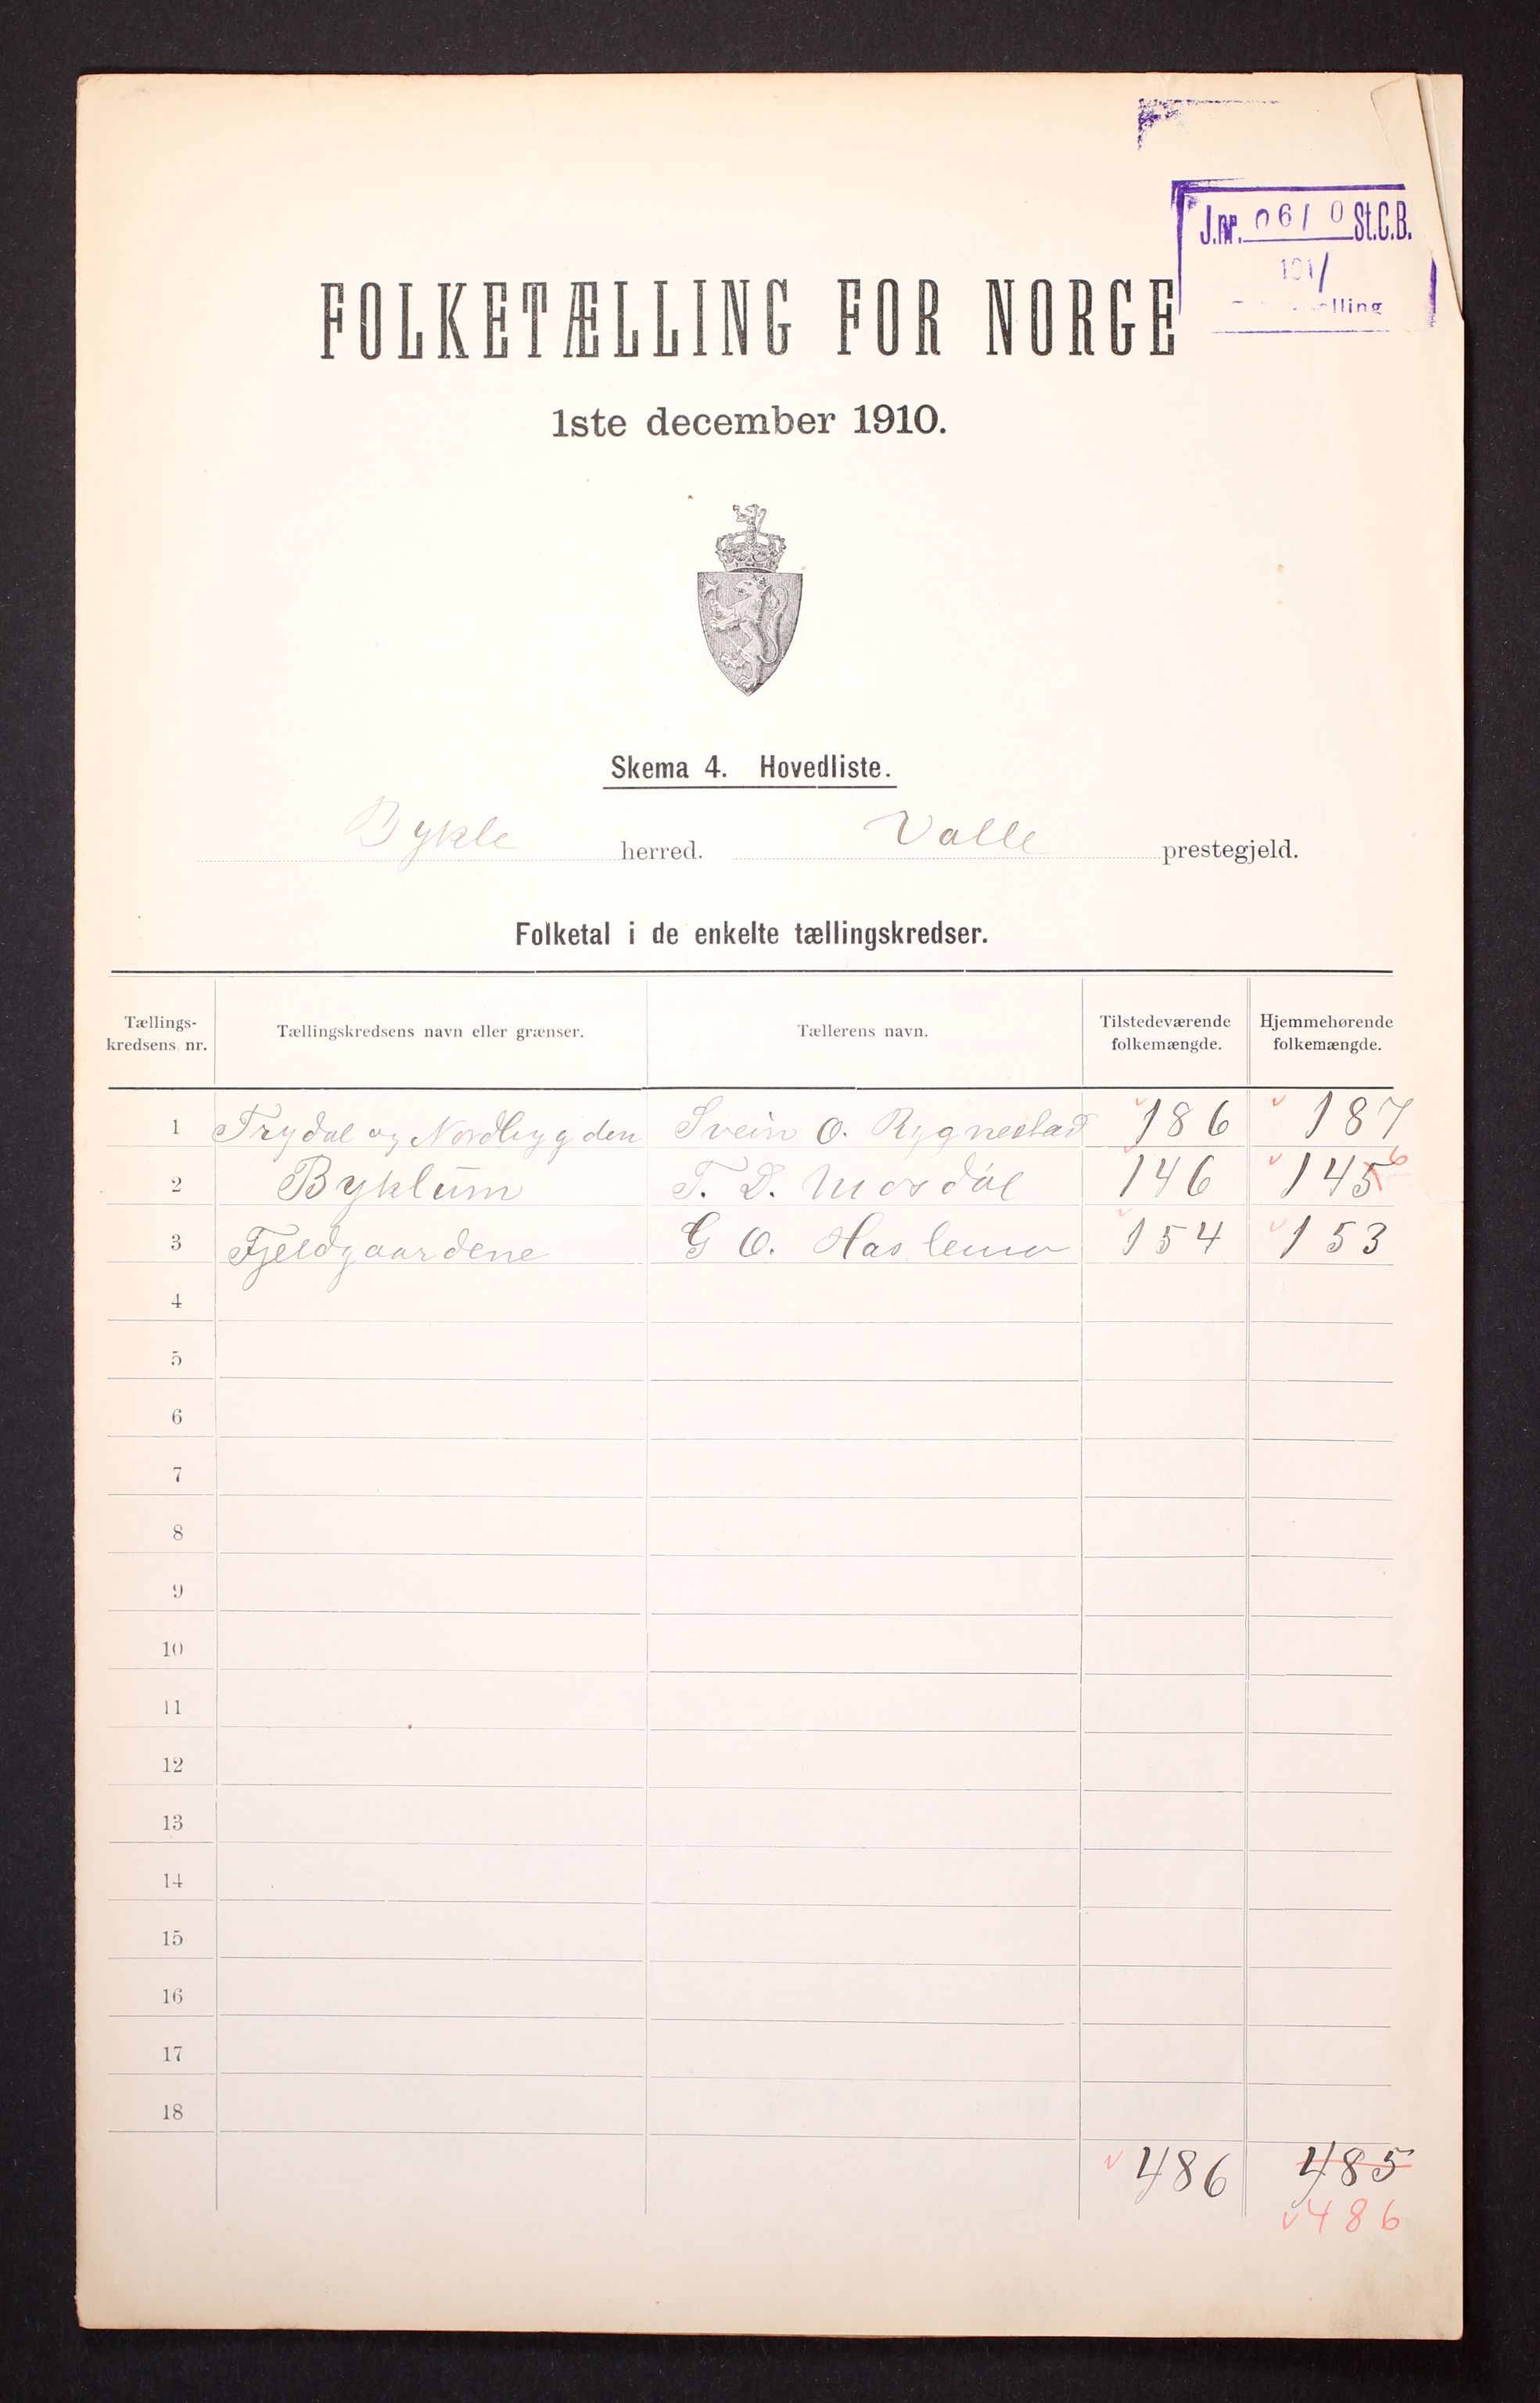 J.nr. 061 0 St.C.B.
191/
elling
FOLKETÆLLING FOR NORGE
1ste december 1910.
Skema 4. Hovedliste.
Bykle herred. Valle prestegjeld.
Folketal i de enkelte tællingskredser.
Tællings-kredsens nr. Tællingskredsens navn eller grænser. Tællerens navn. Tilstedeværende folkemængde. Hjemmehørende folkemængde.
1 Trydal og Nordbygden Svein O. Rygnestad 186 187
2 Byklum T. D. Mosdøl 146 145 6
3 Fjeldgaardene G O. Haslemo 154 153
4
5
6
7
8
9
10
11
12
13
14
15
16
17
18
486 485
486